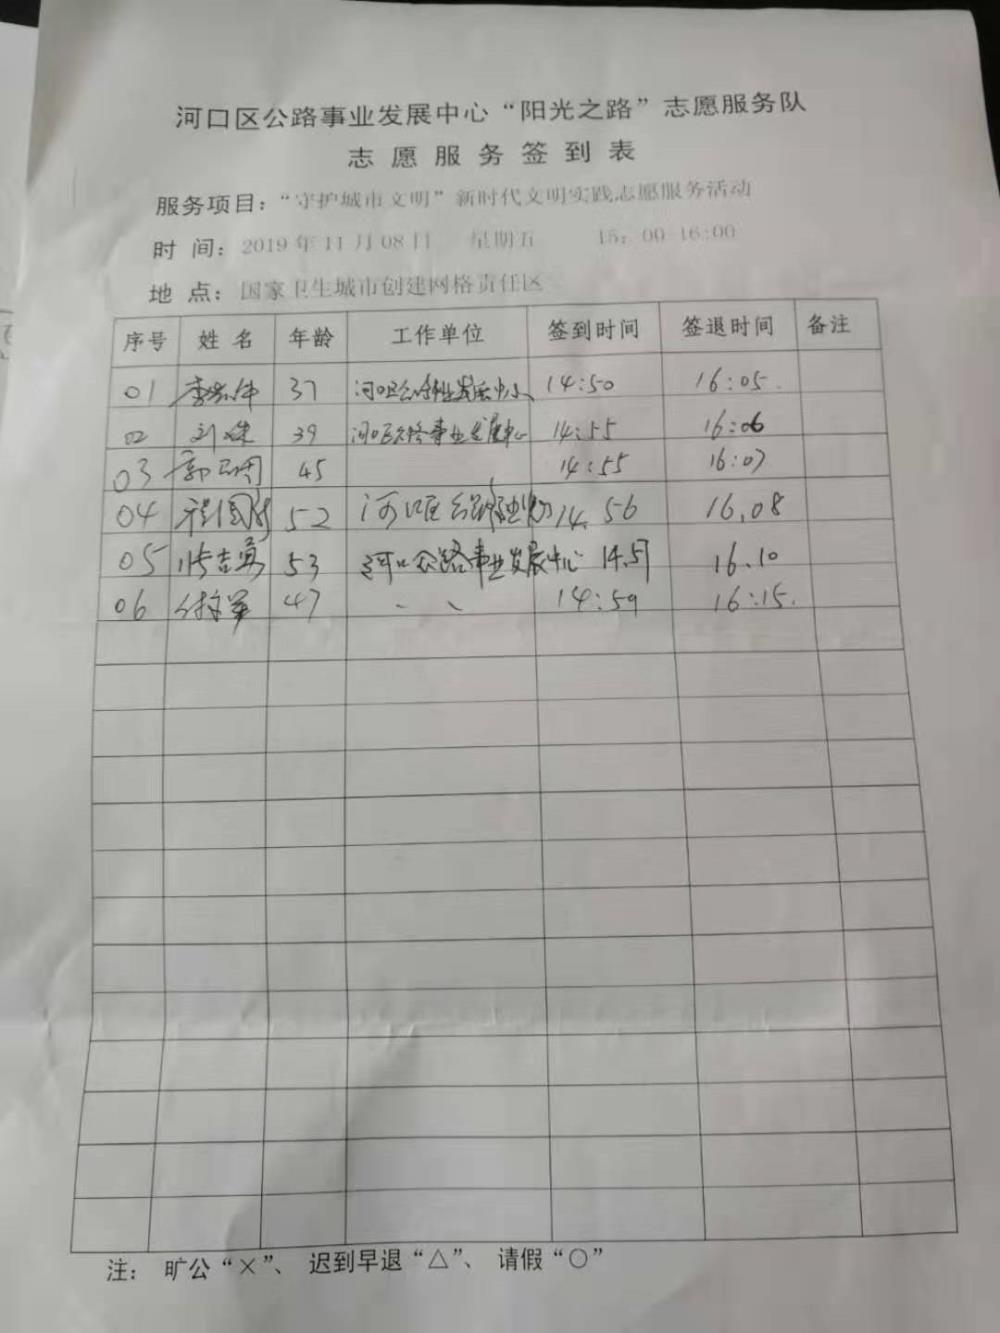 河口区公路事业发展中心“阳光之路”志愿服务队
志愿服务签到表
服务项目：“守护城市文明”新时代文明实践志愿服务活动
时 间：2019年11月08日 星期五 15：00-16:00
地 点：国家卫生城市创建网格责任区
序号 姓名 年龄 工作单位 签到时间 签退时间 备注
01 李 37 河口区公路事业发展中心 14:50 16:05.
02 刘 39 河口区公路事业发展中心 14:55 16:06
03 郭 45 14:55 16:07
04 程国 52 河口区公路 14.56 16.08
05 张吉勇 53 河口公路事业发展中心 14.57 16.10
06 军 47 、、 14:59 16:15.
注： 旷公“×”、 迟到早退“△”、 请假“○”